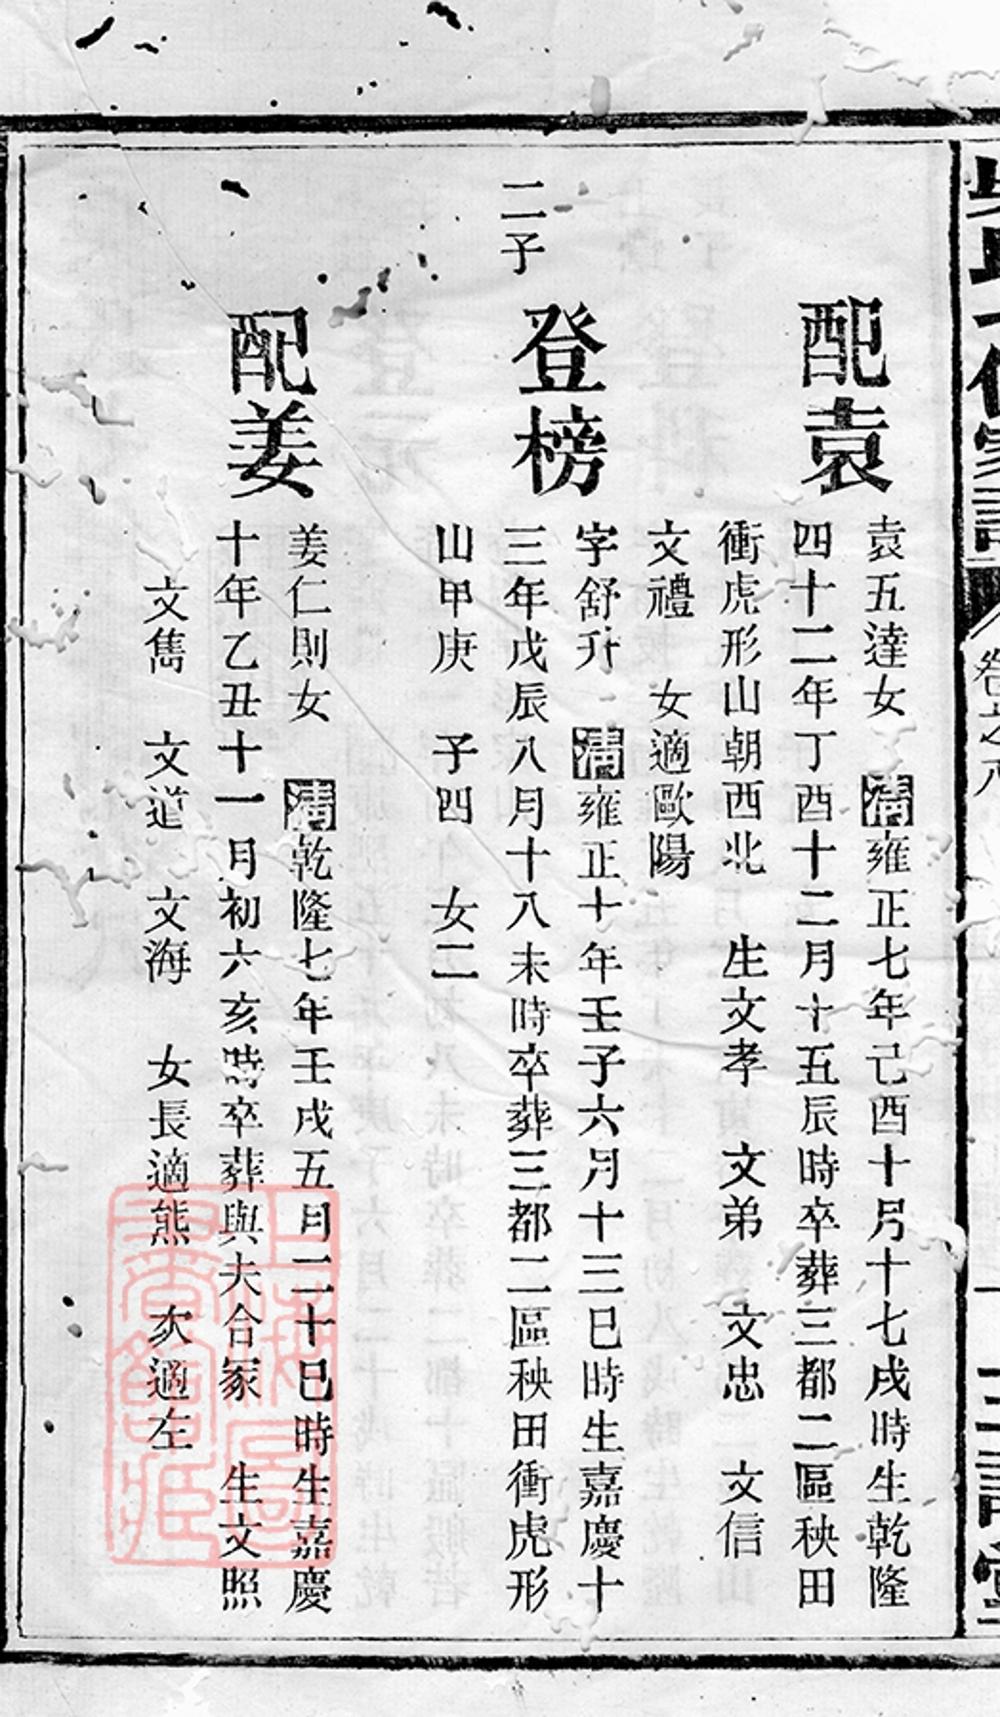 配袁
袁五達女 清雍正七年己酉十月十七戌時生乾隆
四十二年丁酉十二月十五辰時卒葬三都二區秧田
衝虎形山朝西北 生文孝 文弟 文忠 文信
文禮 女適歐陽
二子
登榜
字舒升 清雍正十年壬子六月十三巳時生嘉慶十
三年戊辰八月十八未時卒葬三都二區秧田衝虎形
山甲庚 子四 女二
配姜
姜仁則女 清乾隆七年壬戌五月二十巳時生嘉慶
十年乙丑十一月初六亥時卒葬與夫合冢 生文照
文雋 文道 文海 女長適熊 次適左
卷之八
上海圖書館藏